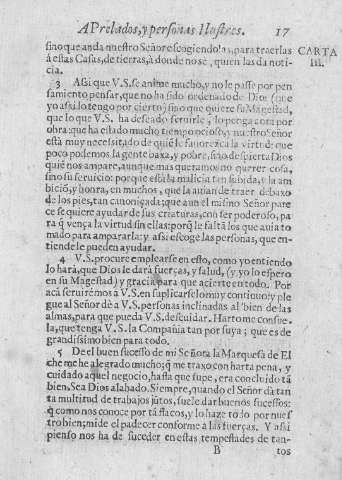 A Prelados, y personas Ilustres. 17
sino que anda nuestro Señor escogiendolas, para traerlas
CARTA
III.
à estas Casas, de tierras, à donde no sè, quien las da noti-
cia.
3 Assi que V.S. se anime mucho, y no le passe por pen
samiento pensar, que no ha sido ordenado de Dios (que
yo assi lo tengo por cierto) sino que quiere su Magestad,
que lo que V.S. ha deseado servirle, lo ponga aora por
obra: que ha estado mucho tiempo ocioso, y nuestro Señor
està muy necesitado de quiẽ le favorezca la virtud: que
poco podemos la gente baxa, y pobre, sino despierta Dios
quiẽ nos ampare, aunque mas queramos no querer cosa,
sino su servicio: porque està la malicia tan subida, y la am
bició, y honra, en muchos, que la auian de traer debaxo
de los pies, tan canoniçada; que aun el mismo Señor pare
ce se quiere ayudar de sus criaturas, con ser poderoso, pa
ra q̃ vença la virtud sin ellas: porq̃ le faltã los que auia to
mado para ampararla: y assi escoge las personas, que en-
tiende le pueden ayudar.
4 V.S. procure emplearse en esto, como yo entiendo
lo harà, que Dios le darà fuerças, y salud, (y yo lo espero
en su Magestad) y gracia para que acierte en todo. Por
acà serviremos à V.S. en suplicarselo muy contiguo: y ple
gue al Señor dè a V.S. personas inclinadas al bien de las
almas, para que pueda V.S. descuidar. Harto me consue-
la, que tenga V.S. la Compañia tan por suya; que es de
grandissimo bien para todo.
5 De el buen sucesso de mi Señora la Marquesa de El
che me he alegrado mucho; q̃ me traxo con harta pena, y
cuidado aquel negocio, hasta que supe, era concluido tã
bien. Sea Dios alabado. Siempre, quando el Señor dà tan
ta multitud de trabajos jũtos, suele dar buenos sucessos:
q̃ como nos conoce por tã flacos, y lo haze todo por nues
tro bien; mide el padecer conforme a las fuerças. Y assi
pienso nos ha de suceder en estas tempestades de tan-
B tos